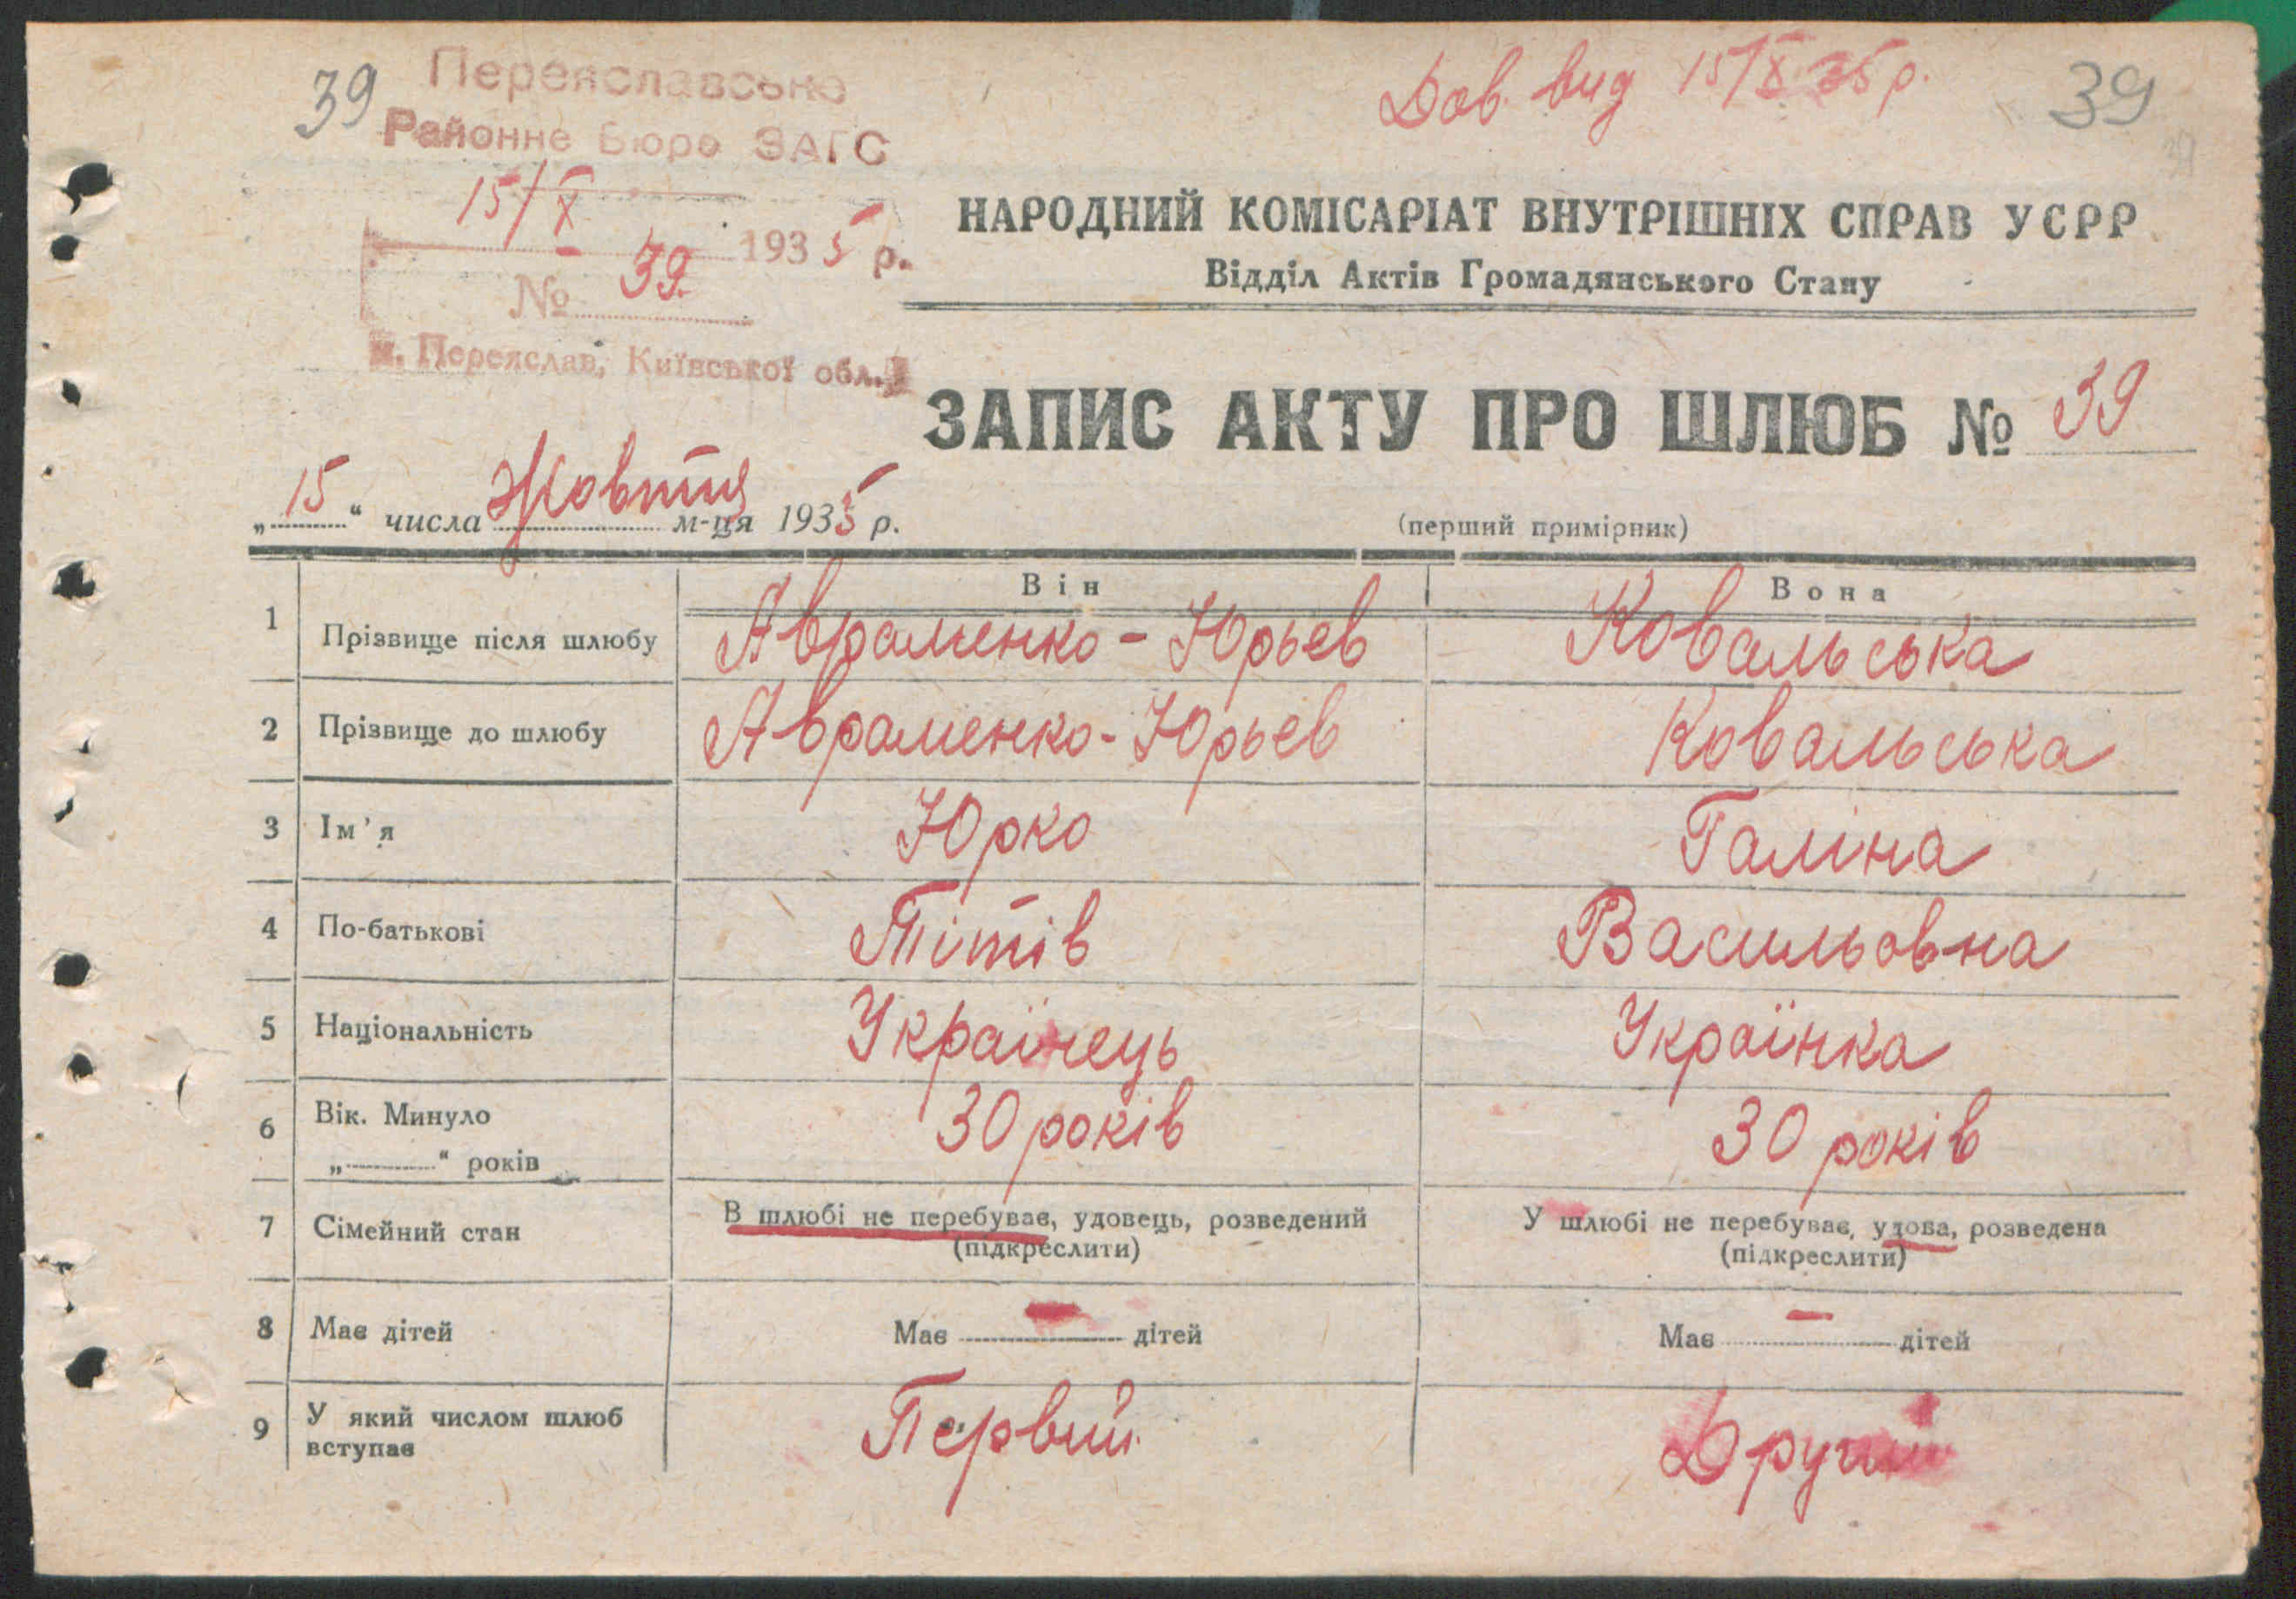 39
Переяславське
Районне Бюро ЗАГС
15/X 1935 р.
№ 39
м. Переяслав, Київської обл.
Дов. вид 15/X 35 р.
39
НАРОДНИЙ КОМІСАРІАТ ВНУТРІШНІХ СПРАВ УСРР
Відділ Актів Громадянського Стану
ЗАПИС АКТУ ПРО ШЛЮБ № 39
„15“ числа Жовтня м-ця 1935 р.
(перший примірник)
Він Вона
1 Прізвище після шлюбу Авраменко-Юрьев Ковальська
2 Прізвище до шлюбу Авраменко-Юрьев Ковальська
3 Ім'я Юрко Галіна
4 По-батькові Тітів Васильовна
5 Національність Українець Українка
6 Вік. Минуло „ “ років 30 років 30 років
7 Сімейний стан В шлюбі не перебуває, удовець, розведений (підкреслити) У шлюбі не перебуває, удова, розведена (підкреслити)
8 Має дітей Має — дітей Має — дітей
9 У який числом шлюб вступає Первий Другий